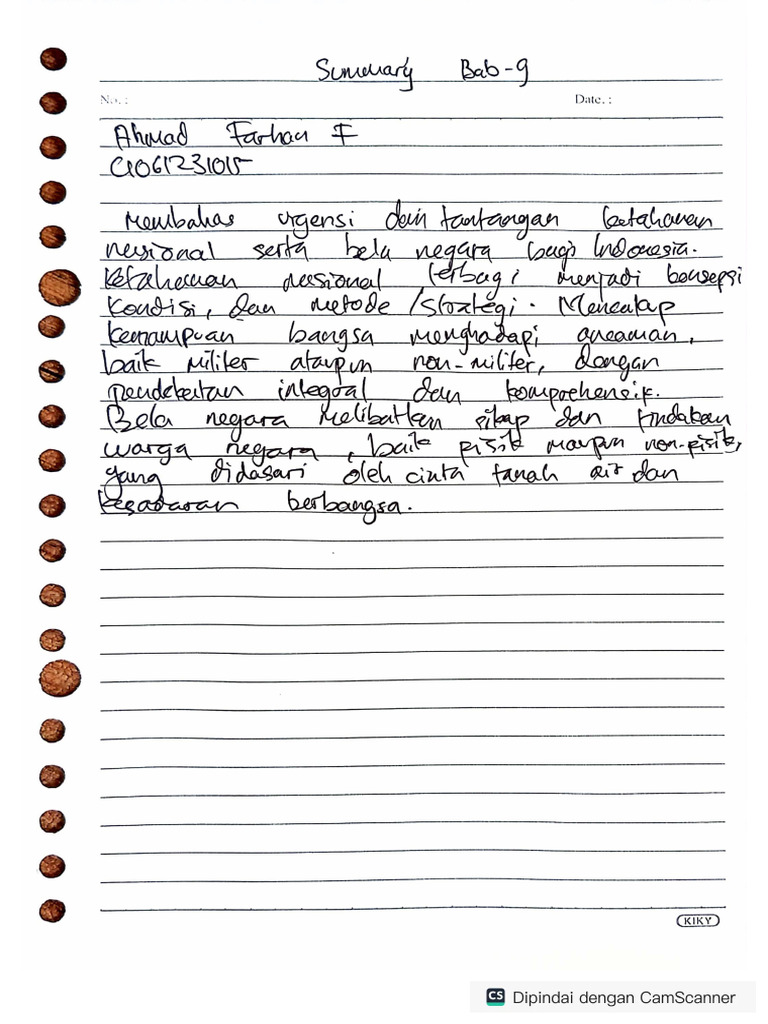 Summary Bab-9
No. : Date. :
Ahmad Farhan F
G1061231015
Membahas urgensi dan tantangan ketahanan
nasional serta bela negara bagi Indonesia.
Ketahanan nasional terbagi menjadi konsepsi
kondisi, dan metode /strategi. Mencakup
kemampuan bangsa menghadapi ancaman,
baik militer ataupun non-militer, dengan
pendekatan integral dan komprehensif.
Bela negara melibatkan sikap dan tindakan
warga negara, baik pisik maupun non-pisik,
yang didasari oleh cinta tanah air dan
kesadaran berbangsa.
KIKY
CS Dipindai dengan CamScanner